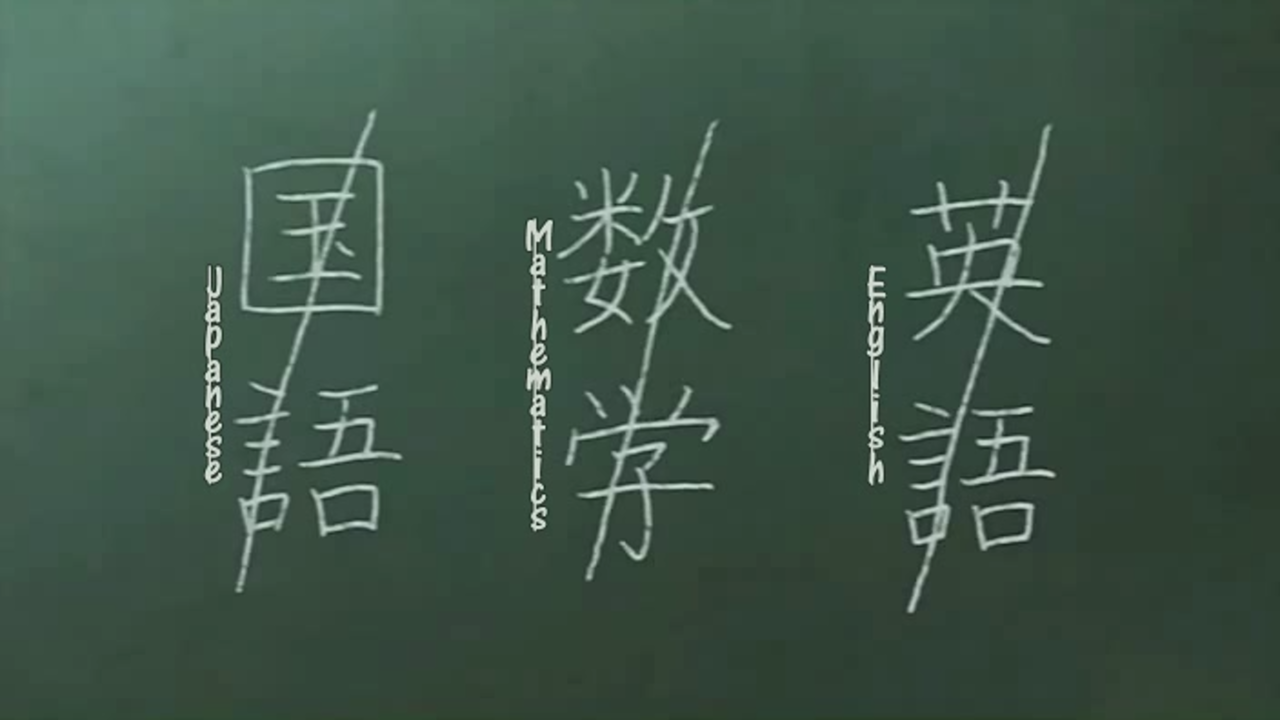 Japanese
国語
Mathematics
数学
English
英語